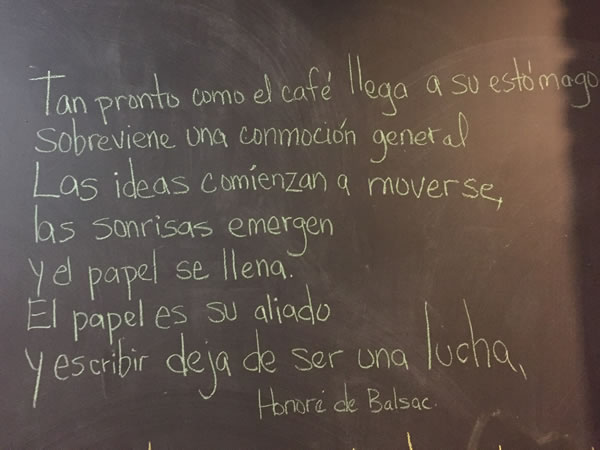 Tan pronto como el café llega a su estómago
Sobreviene una conmoción general
Las ideas comienzan a moverse,
las sonrisas emergen
y el papel se llena.
El papel es su aliado
y escribir deja de ser una lucha,
Honoré de Balsac.